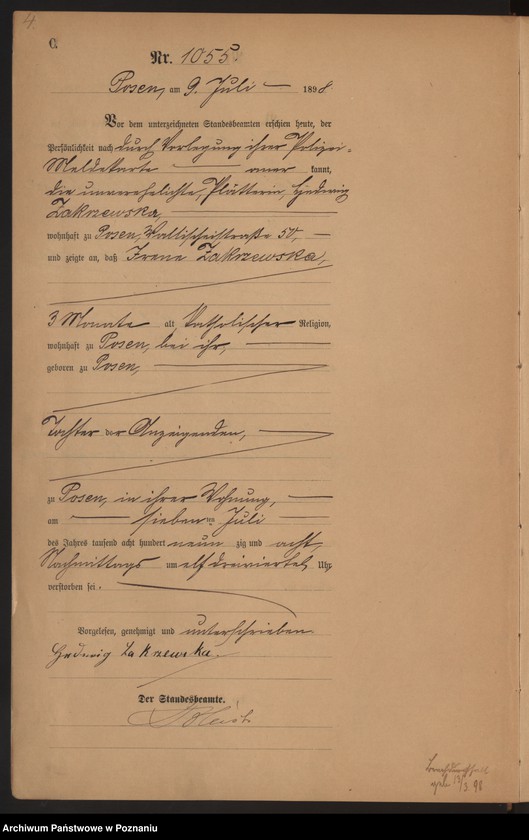 4.
C.
Nr. 1055.
Posen, am 9. Juli 1898
Vor dem unterzeichneten Standesbeamten erschien heute, der
Persönlichkeit nach durch Vorlegung ihrer Polizei-
Meldekarte aner kannt,
die unverehelichte, Plätterin Hedwig
Zakrzewska,
wohnhaft zu Posen, Wallischeistraße 50,
und zeigte an, daß Irene Zakrzewska,
3 Monate alt, katholischer Religion,
wohnhaft zu Posen, bei ihr,
geboren zu Posen,
Tochter der Anzeigenden,
zu Posen, in ihrer Wohnung,
am sieben ten Juli
des Jahres tausend acht hundert neun zig und acht,
Nachmittags um elf dreiviertel Uhr
verstorben sei.
Vorgelesen, genehmigt und unterschrieben.
Hedwig Zakrzewska.
Der Standesbeamte.
98
Archiwum Państwowe w Poznaniu